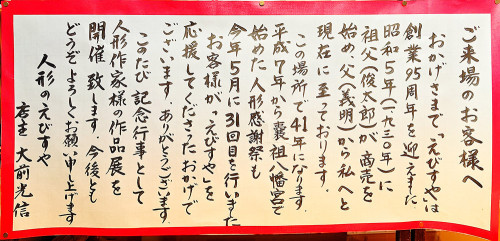 ご来場のお客様へ
おかげさまで「えびすや」は
創業95周年を迎えました
昭和5年(一九三〇年)に
祖父(俊太郎)が商売を
始め父(義明)から私へと
現在に至っております。
この場所で41年になります。
平成7年から曩祖八幡宮で
始めた人形感謝祭も
今年5月に31回目を行いました
お客様が「えびすや」を
応援してくださったおかげで
ございます。ありがとうございます。
このたび記念行事として
人形作家様の作品展を
開催致します。今後とも
どうぞよろしくお願い申し上げます
人形のえびすや
店主 大前光信